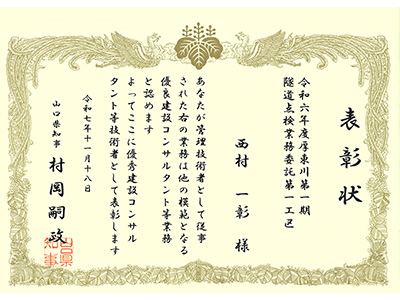 表彰状
令和六年度厚東川第一期
隧道点検業務委託第一工区
西村 一彰 様
あなたが管理技術者として従事
された右の業務は他の模範となる
優良建設コンサルタント等業務
と認めます
よってここに優秀建設コンサル
タント等技術者として表彰します
令和七年十一月十八日
山口県知事 村岡嗣政
山口県知事